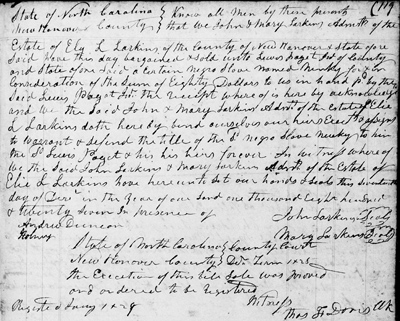 State of North Carolina } Know all men by these presents (119
New Hanover County } that We John & Mary Larkins Admrs of the
Estate of Ely L Larkins of the County of New Hanover & State afore
Said have this day bargained & Sold unto Lewis Paget Sr of County
and State afore said a certain Negro Slave named for &
Consideration of the Sum of Eighty Dollars to us in hand pd by the
Said Lewis Paget Sr the receipt where of is here by acknowledged
and We the Said John & Mary Larkins Admrs of the Estate of Elie
L Larkins doth here by bind ourselves our heirs Exects & assigns
to Warrant & defend the title of the Sd negro Slave to him
the Sd Lewis Paget & his heirs forever In Witness where of
We the Said John Larkins & Mary Larkins Admrs of the Estate of
Elie L Larkins have here unto set our hands & Seals this Seventeenth
day of in the Year of our Lord one thousand Eight hundred
& Twenty Seven In presence of
Andrew Duncan John Larkins (Seal)
Mary Larkins (Seal)
State of North Carolina } County Court
New Hanover County }
the Execution of this bill Sale was proved
and ordered to be registered
Witness
Registered Jany 1828 Thos F Davis Clk